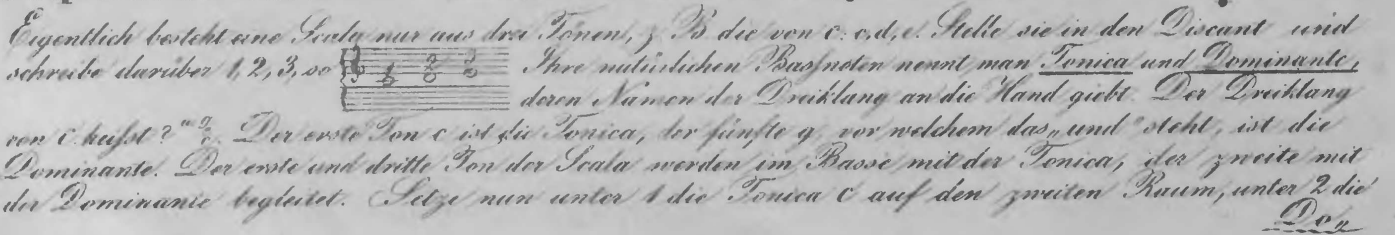 Eigentlich besteht eine Scala nur aus drei Tönen, z B. die von c: c,d,e. Stelle sie in den Discant und
schreibe darüber 1, 2, 3, so Ihre natürlichen Bassnoten nennt man Tonica und Dominante,
deren Namen der Dreiklang an die Hand giebt. Der Dreiklang
von c heisst? Der erste Ton c ist die Tonica, der fünfte g, vor welchem das „und" steht, ist die
Dominante. Der erste und dritte Ton der Scala werden im Basse mit der Tonica, der zweite mit
der Dominante begleitet. Setze nun unter 1 die Tonica C auf den zweiten Raum, unter 2 die
Do„